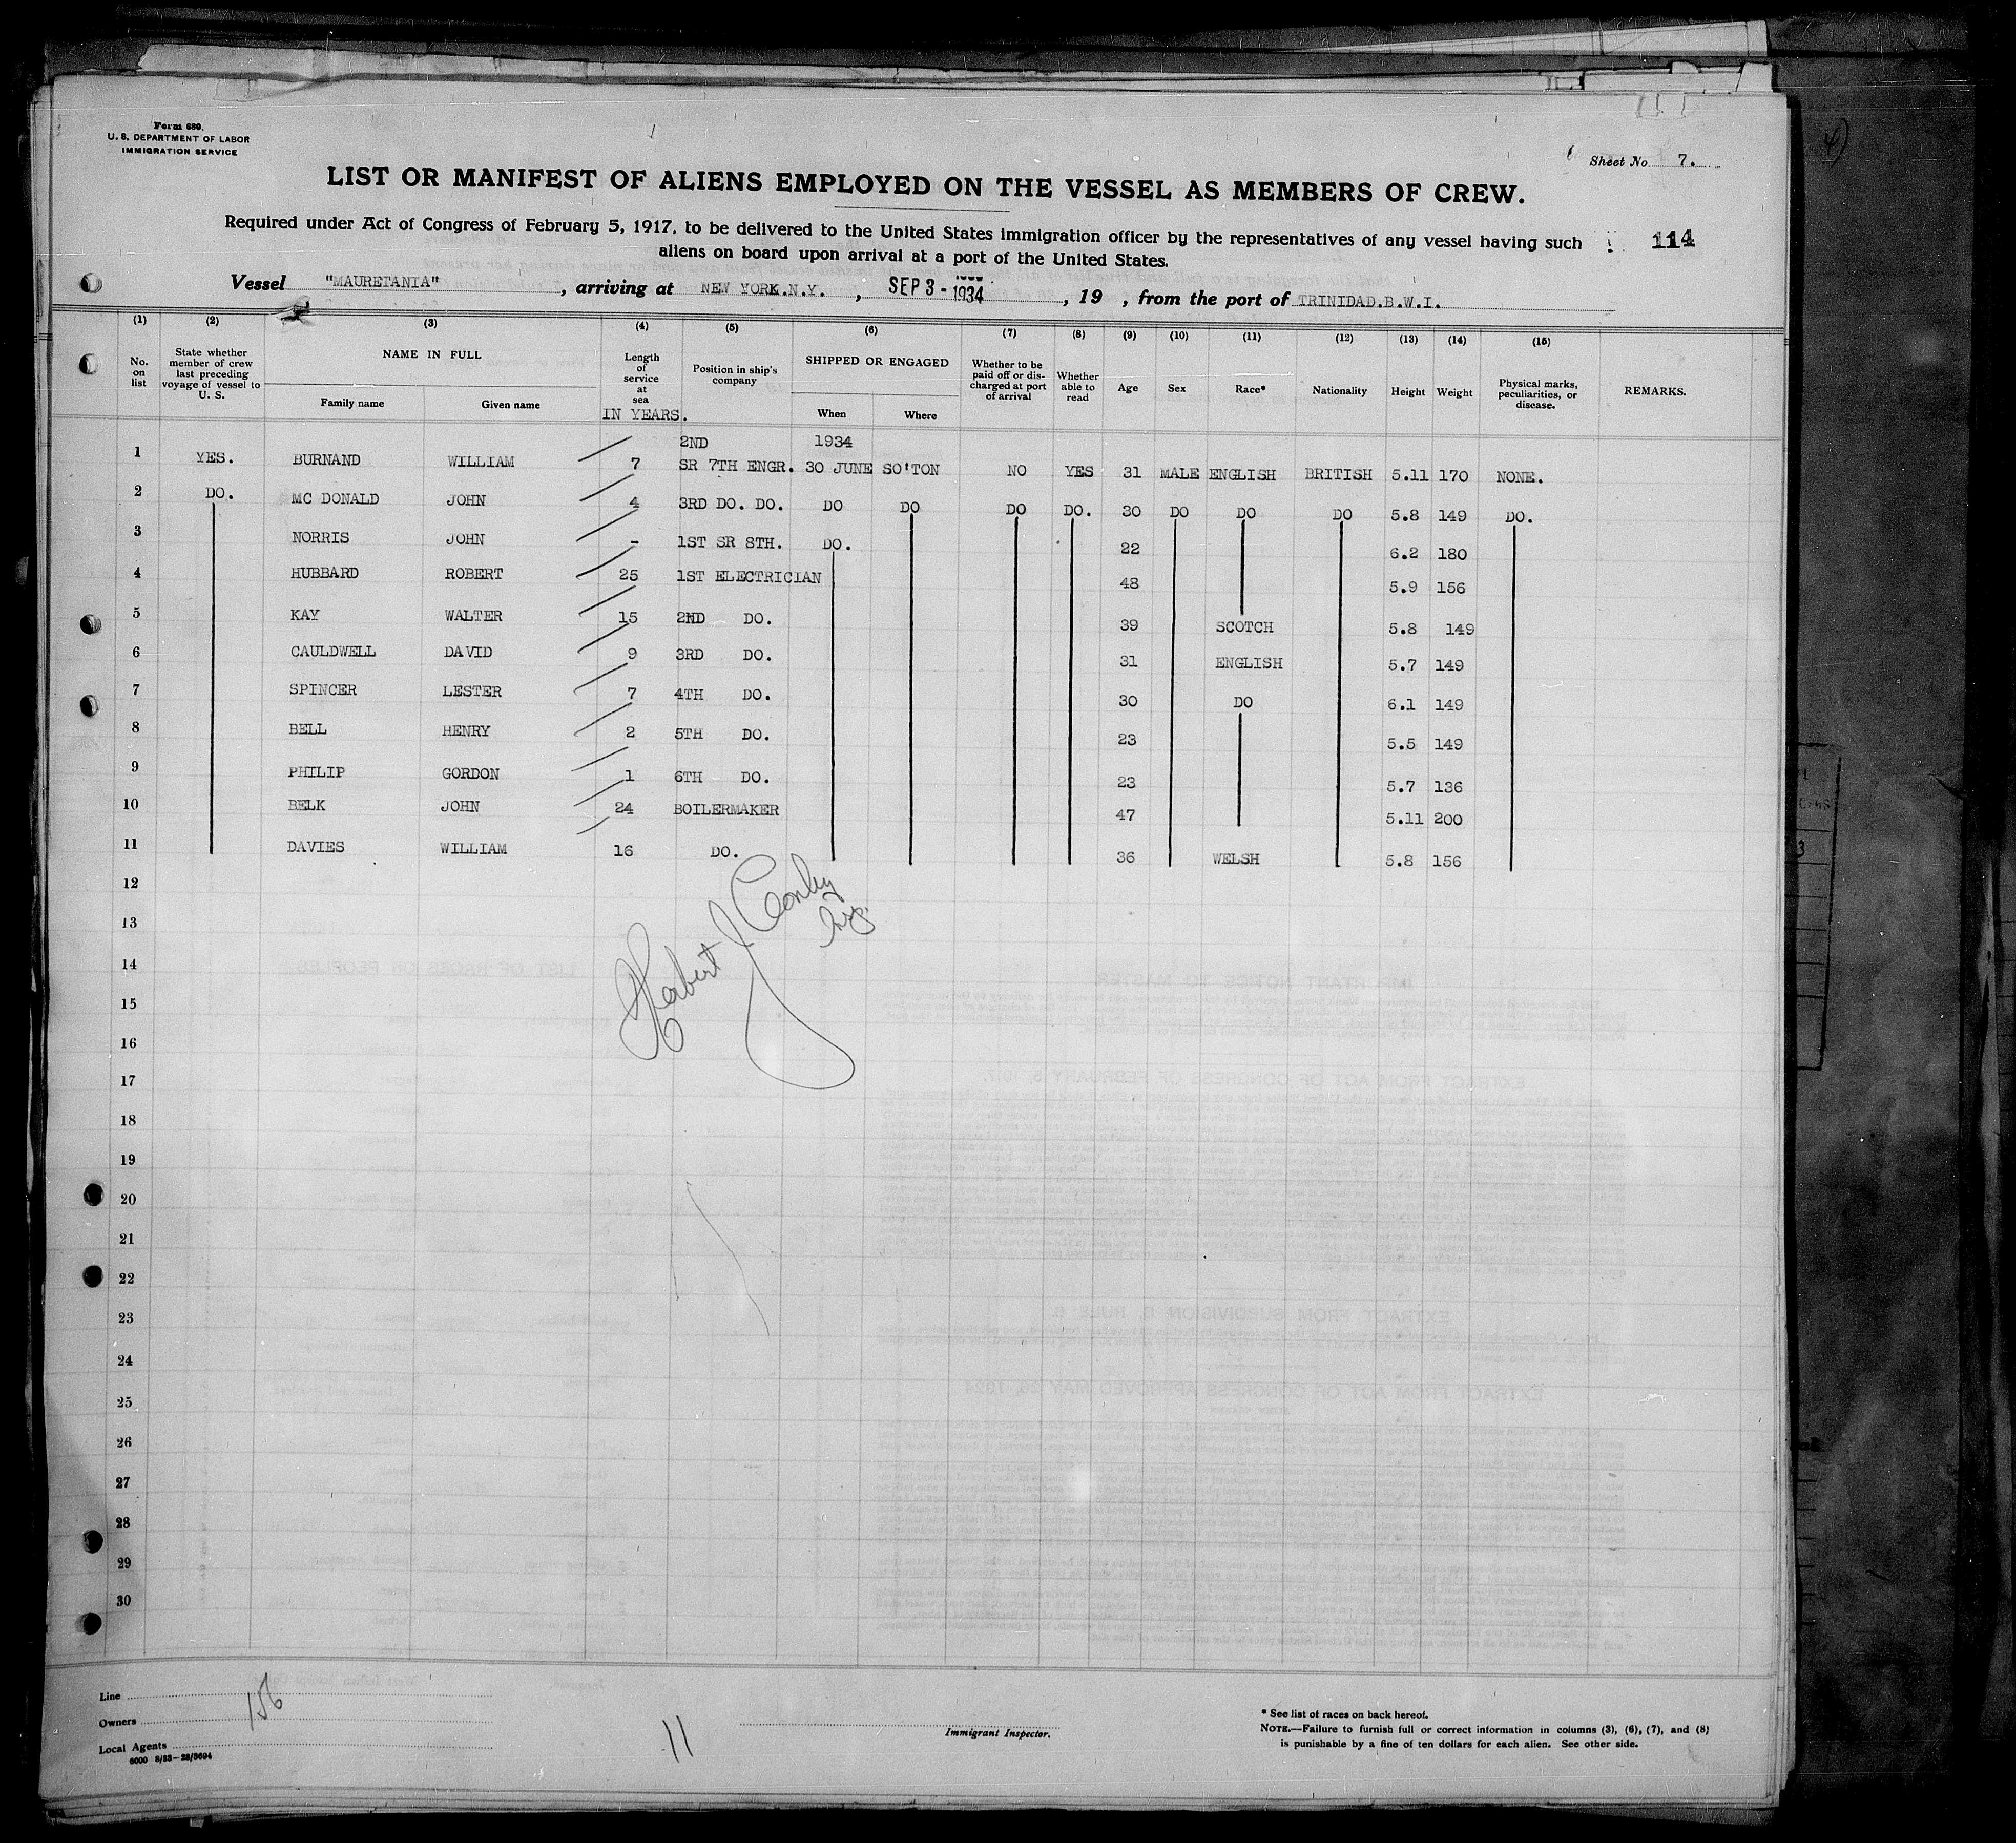 Form 680.
U. S. DEPARTMENT OF LABOR
IMMIGRATION SERVICE
Sheet No. 7.
LIST OR MANIFEST OF ALIENS EMPLOYED ON THE VESSEL AS MEMBERS OF CREW.
Required under Act of Congress of February 5, 1917, to be delivered to the United States immigration officer by the representatives of any vessel having such
aliens on board upon arrival at a port of the United States.
114
Vessel "MAURETANIA", arriving at NEW YORK.N.Y., SEP 3 - 1934, 19 , from the port of TRINIDAD.B.W.I.
(1) (2) (3) (4) (5) (6) (7) (8) (9) (10) (11) (12) (13) (14) (15)
No. on list State whether member of crew last preceding voyage of vessel to U. S. NAME IN FULL Family name Given name Length of service at sea IN YEARS. Position in ship's company SHIPPED OR ENGAGED When Where Whether to be paid off or discharged at port of arrival Whether able to read Age Sex Race* Nationality Height Weight Physical marks, peculiarities, or disease. REMARKS.
2ND 1934
1 YES. BURNAND WILLIAM 7 SR 7TH ENGR. 30 JUNE SO'TON NO YES 31 MALE ENGLISH BRITISH 5.11 170 NONE.
2 DO. MC DONALD JOHN 4 3RD DO. DO. DO DO DO DO. 30 DO DO DO 5.8 149 DO.
3 NORRIS JOHN - 1ST SR 8TH. DO. 22 6.2 180
4 HUBBARD ROBERT 25 1ST ELECTRICIAN 48 5.9 156
5 KAY WALTER 15 2ND DO. 39 SCOTCH 5.8 149
6 CAULDWELL DAVID 9 3RD DO. 31 ENGLISH 5.7 149
7 SPINCER LESTER 7 4TH DO. 30 DO 6.1 149
8 BELL HENRY 2 5TH DO. 23 5.5 149
9 PHILIP GORDON 1 6TH DO. 23 5.7 136
10 BELK JOHN 24 BOILERMAKER 47 5.11 200
11 DAVIES WILLIAM 16 DO. 36 WELSH 5.8 156
12
13
14
15
16
17
18
19
20
21
22
23
24
25
26
27
28
29
30
Line
Owners
Local Agents
156
6000 8/33—28/3694
11
Immigrant Inspector.
* See list of races on back hereof.
NOTE.—Failure to furnish full or correct information in columns (3), (6), (7), and (8)
is punishable by a fine of ten dollars for each alien. See other side.